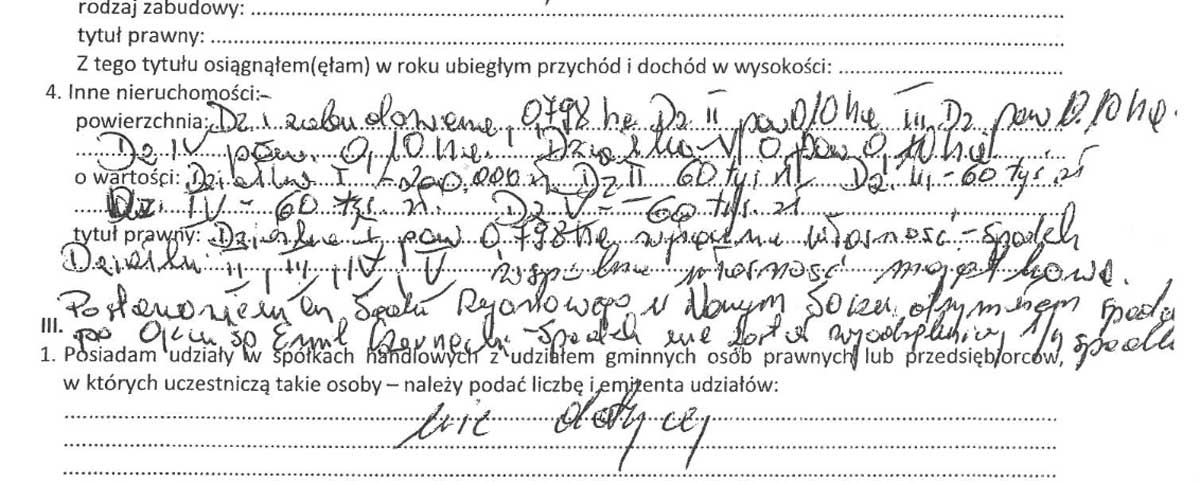 rodzaj zabudowy: ........................................
tytuł prawny: ........................................
Z tego tytułu osiągnąłem(ęłam) w roku ubiegłym przychód i dochód w wysokości: ........................................
4. Inne nieruchomości:-
powierzchnia: Dz I zabudowana, 0,798 ha Dz II pow 0,10 ha III Dz. pow 0.10 ha.
Dz IV pow. 0,10 ha. Działka V pow 0,10 ha
o wartości: Działka I - 200,000 zł Dz II 60 tys zł Dz. III - 60 tys zł
Dz. IV - 60 tys. zł. Dz V - 60 tys. zł
tytuł prawny: Działka I, pow 0,798 ha własność - spadek
Działki II, III, IV, V wspólna własność majątkowa.
Postanowieniem Sądu Rejonowego w Nowym Sączu otrzymałem
III. po Ojcu śp Emil - Spadek nie został 1/4
1. Posiadam udziały w spółkach handlowych z udziałem gminnych osób prawnych lub przedsiębiorców,
w których uczestniczą takie osoby – należy podać liczbę i emitenta udziałów:
nie dotyczy